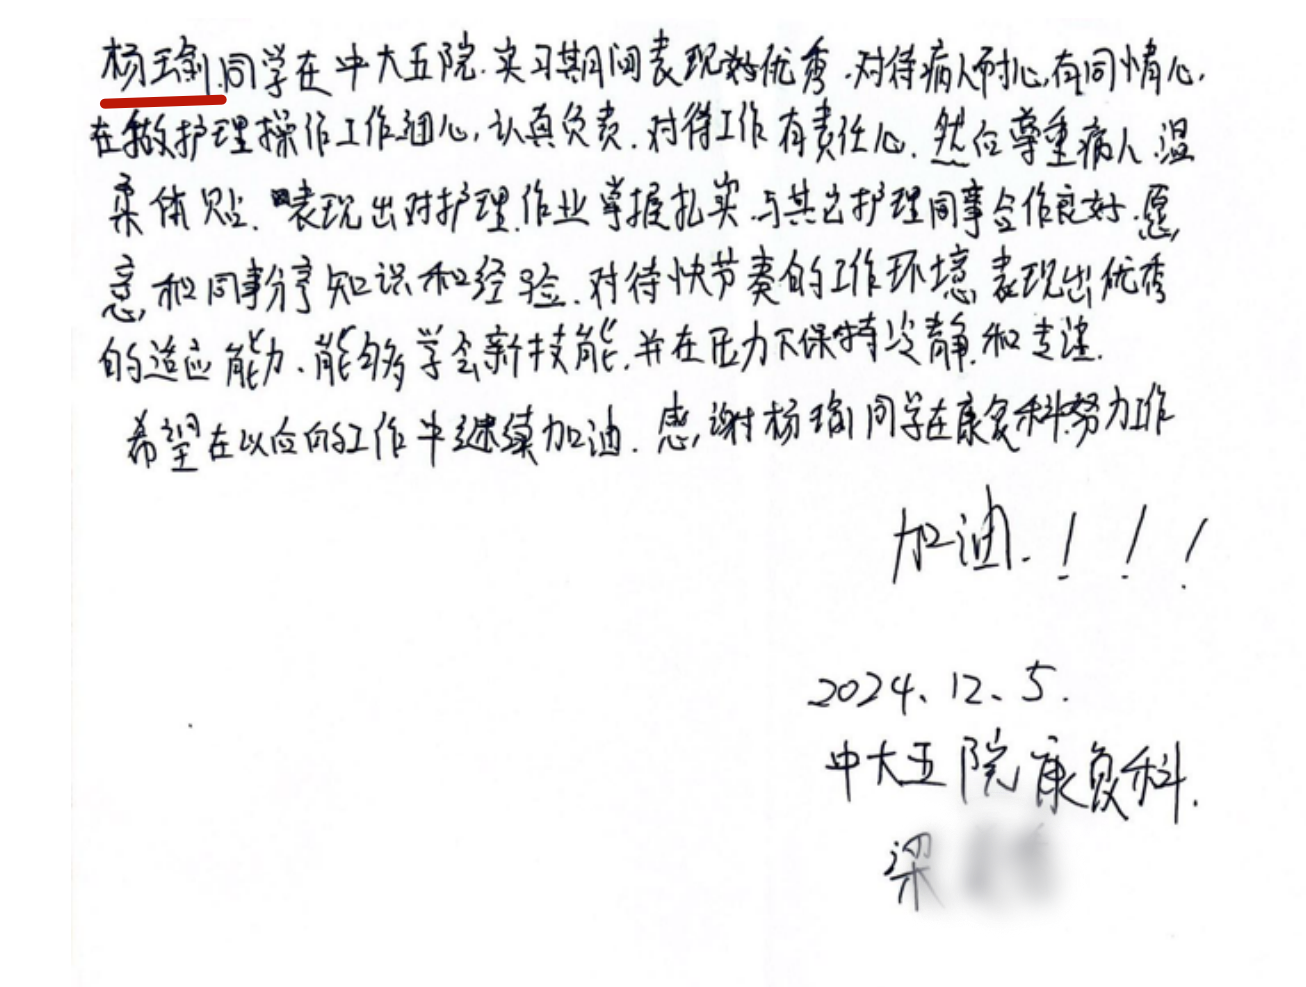 杨瑜同学在中大五院.实习期间表现较优秀.对待病人耐心,有同情心,
在做护理操作工作细心,认真负责.对待工作有责任心.然后尊重病人.温
柔体贴.表现出对护理.作业掌握扎实.与其它护理同事合作良好.愿
意,和同事分享知识和经验.对待快节奏的工作环境,表现出优秀
的适应能力、能够学会新技能.并在压力下保持冷静.和专注.
希望在以后的工作中继续加油.感谢杨瑜同学在康复科努力工作
加油.!!!
2024、12、5.
中大五院康复科.
梁